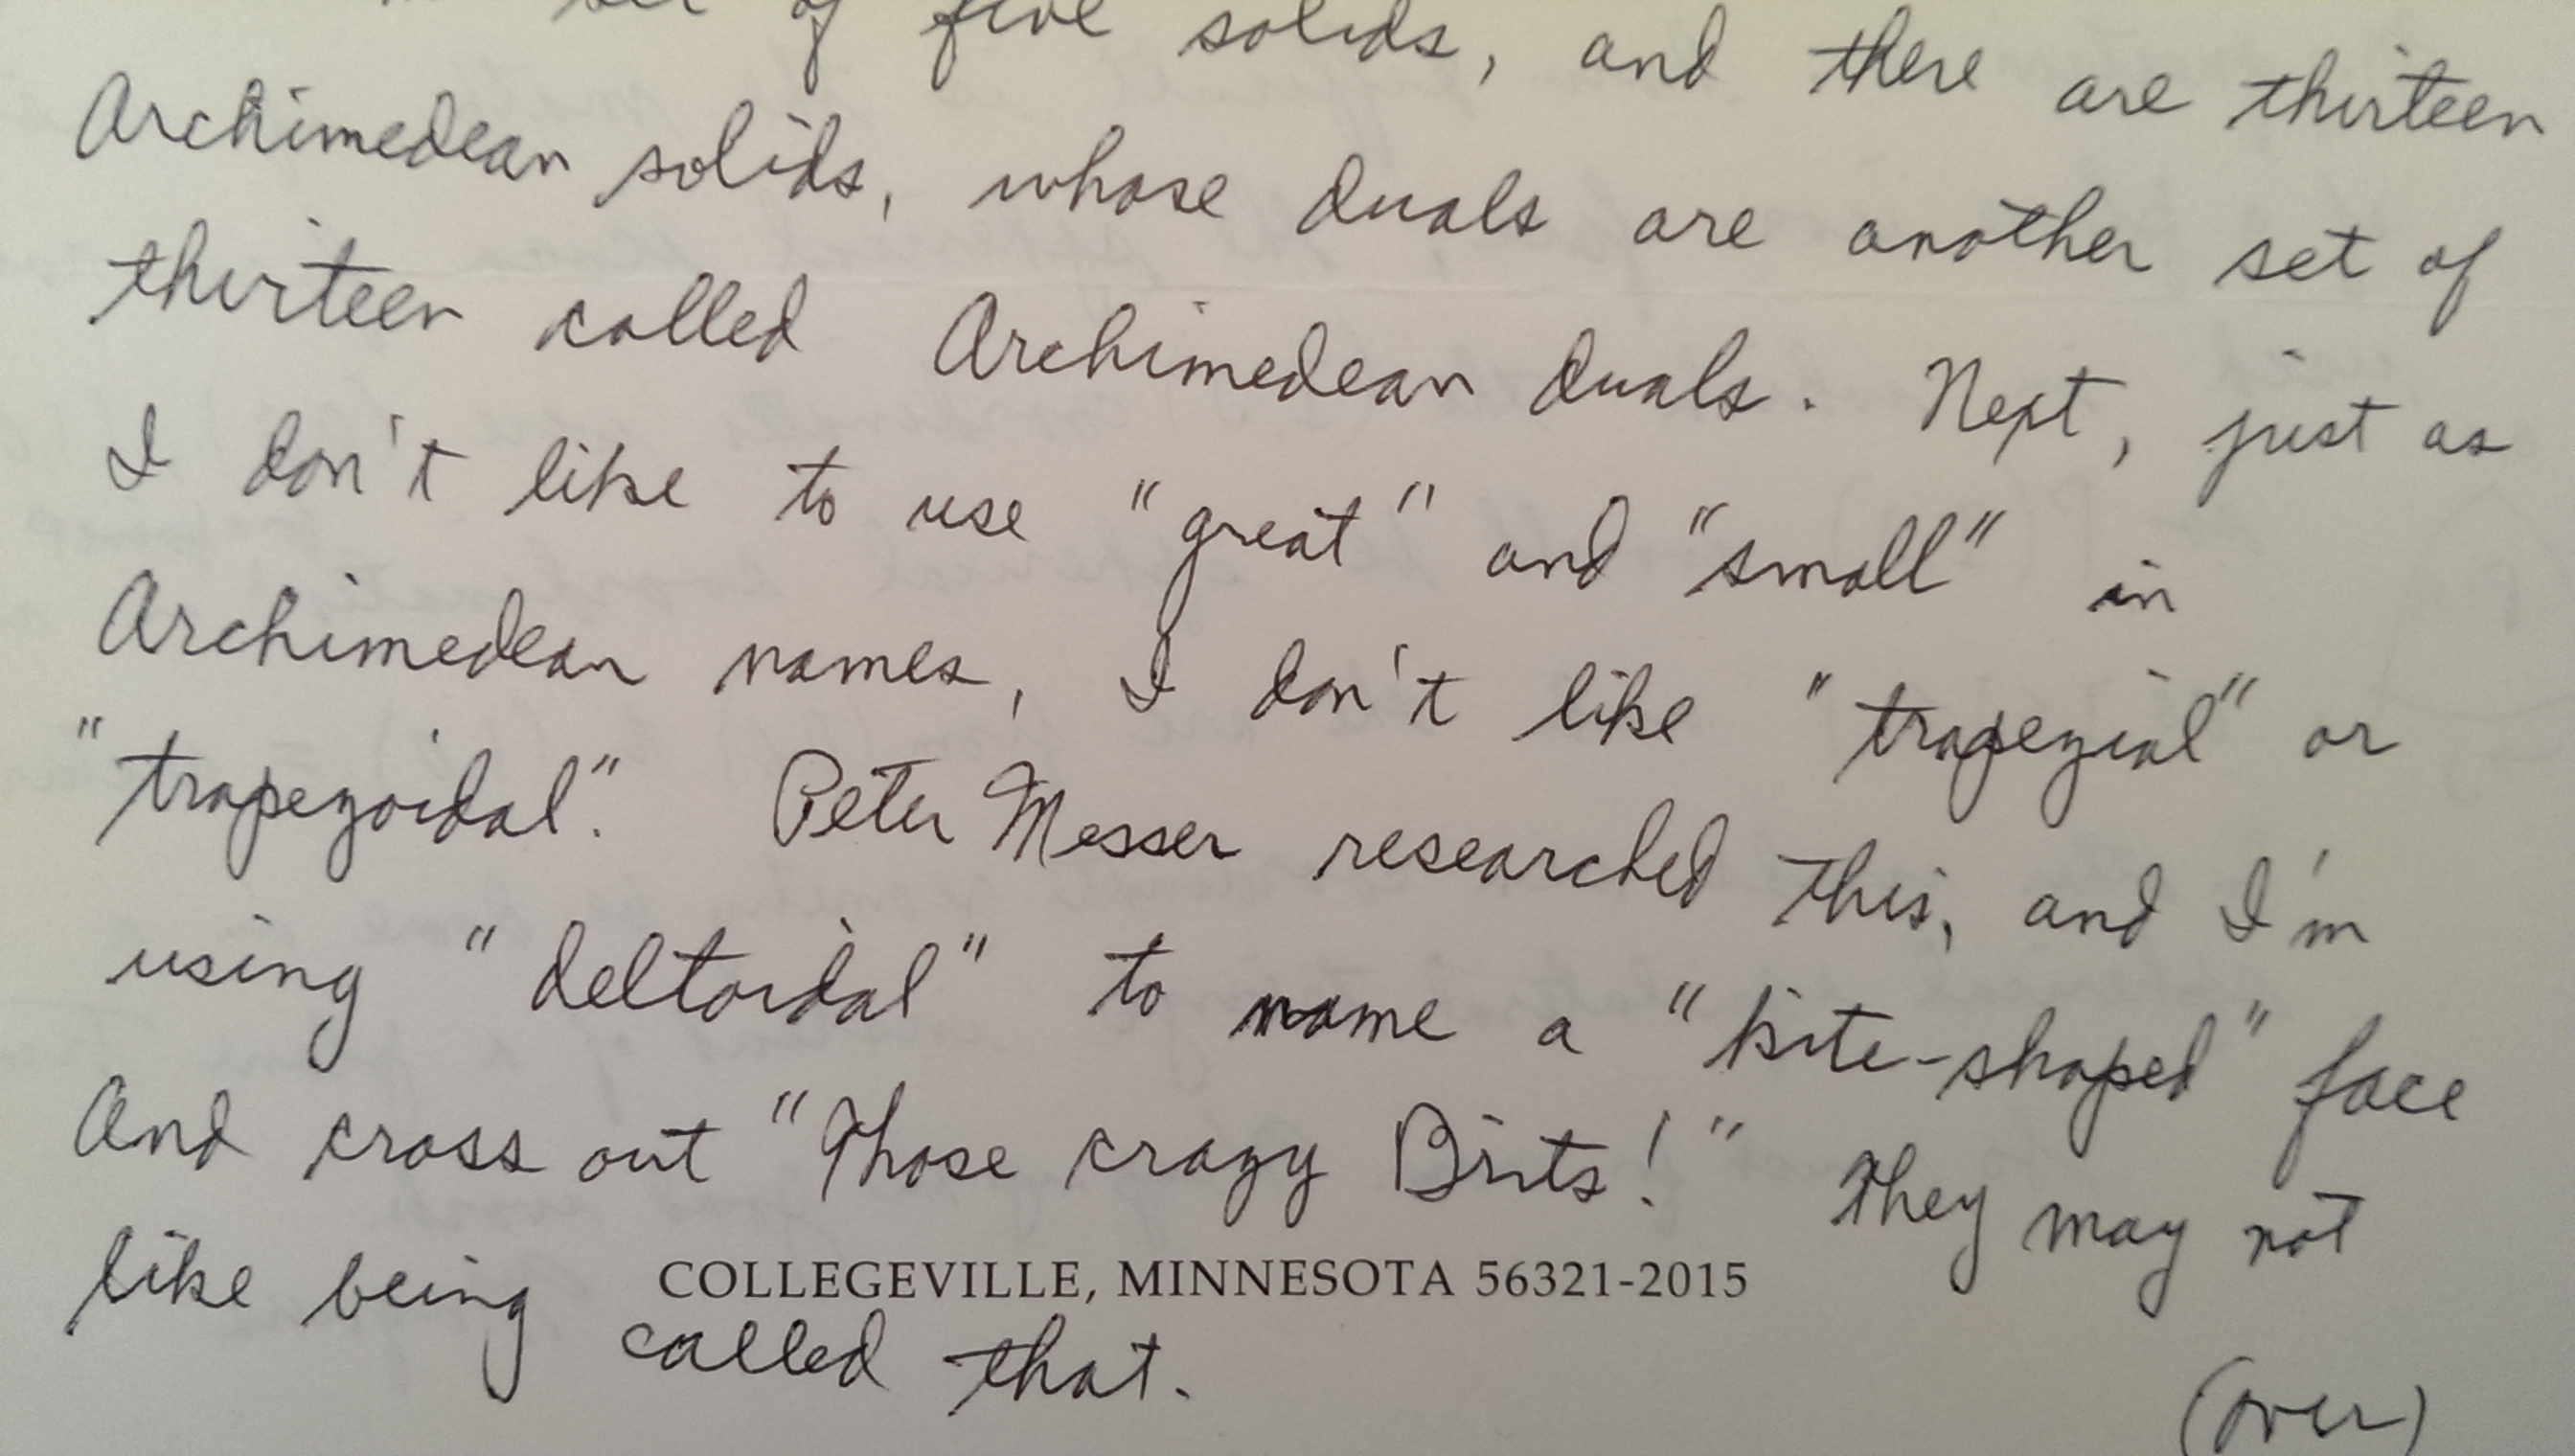 set of five solids, and there are thirteen
Archimedean solids, whose duals are another set of
thirteen called Archimedean duals. Next, just as
I don't like to use "great" and "small" in
Archimedean names, I don't like "trapezial" or
"trapezoidal". Peter Messer researched this, and I'm
using "deltoidal" to name a "kite-shaped" face
And cross out "Those crazy Brits!" They may not
like being
COLLEGEVILLE, MINNESOTA 56321-2015
called that.
(over)